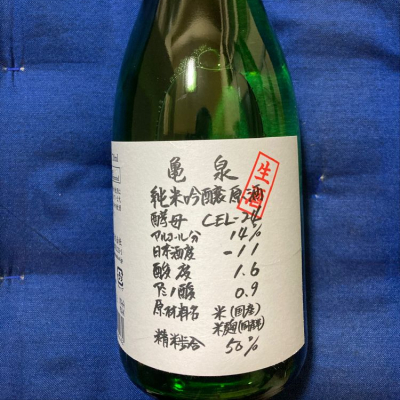 亀泉
生酒
純米吟醸原酒
酵母 CEL-24
アルコール分 14%
日本酒度 -11
酸度 1.6
アミノ酸 0.9
原材料名 米(国産)
米麹(国産米)
精米歩合 50%